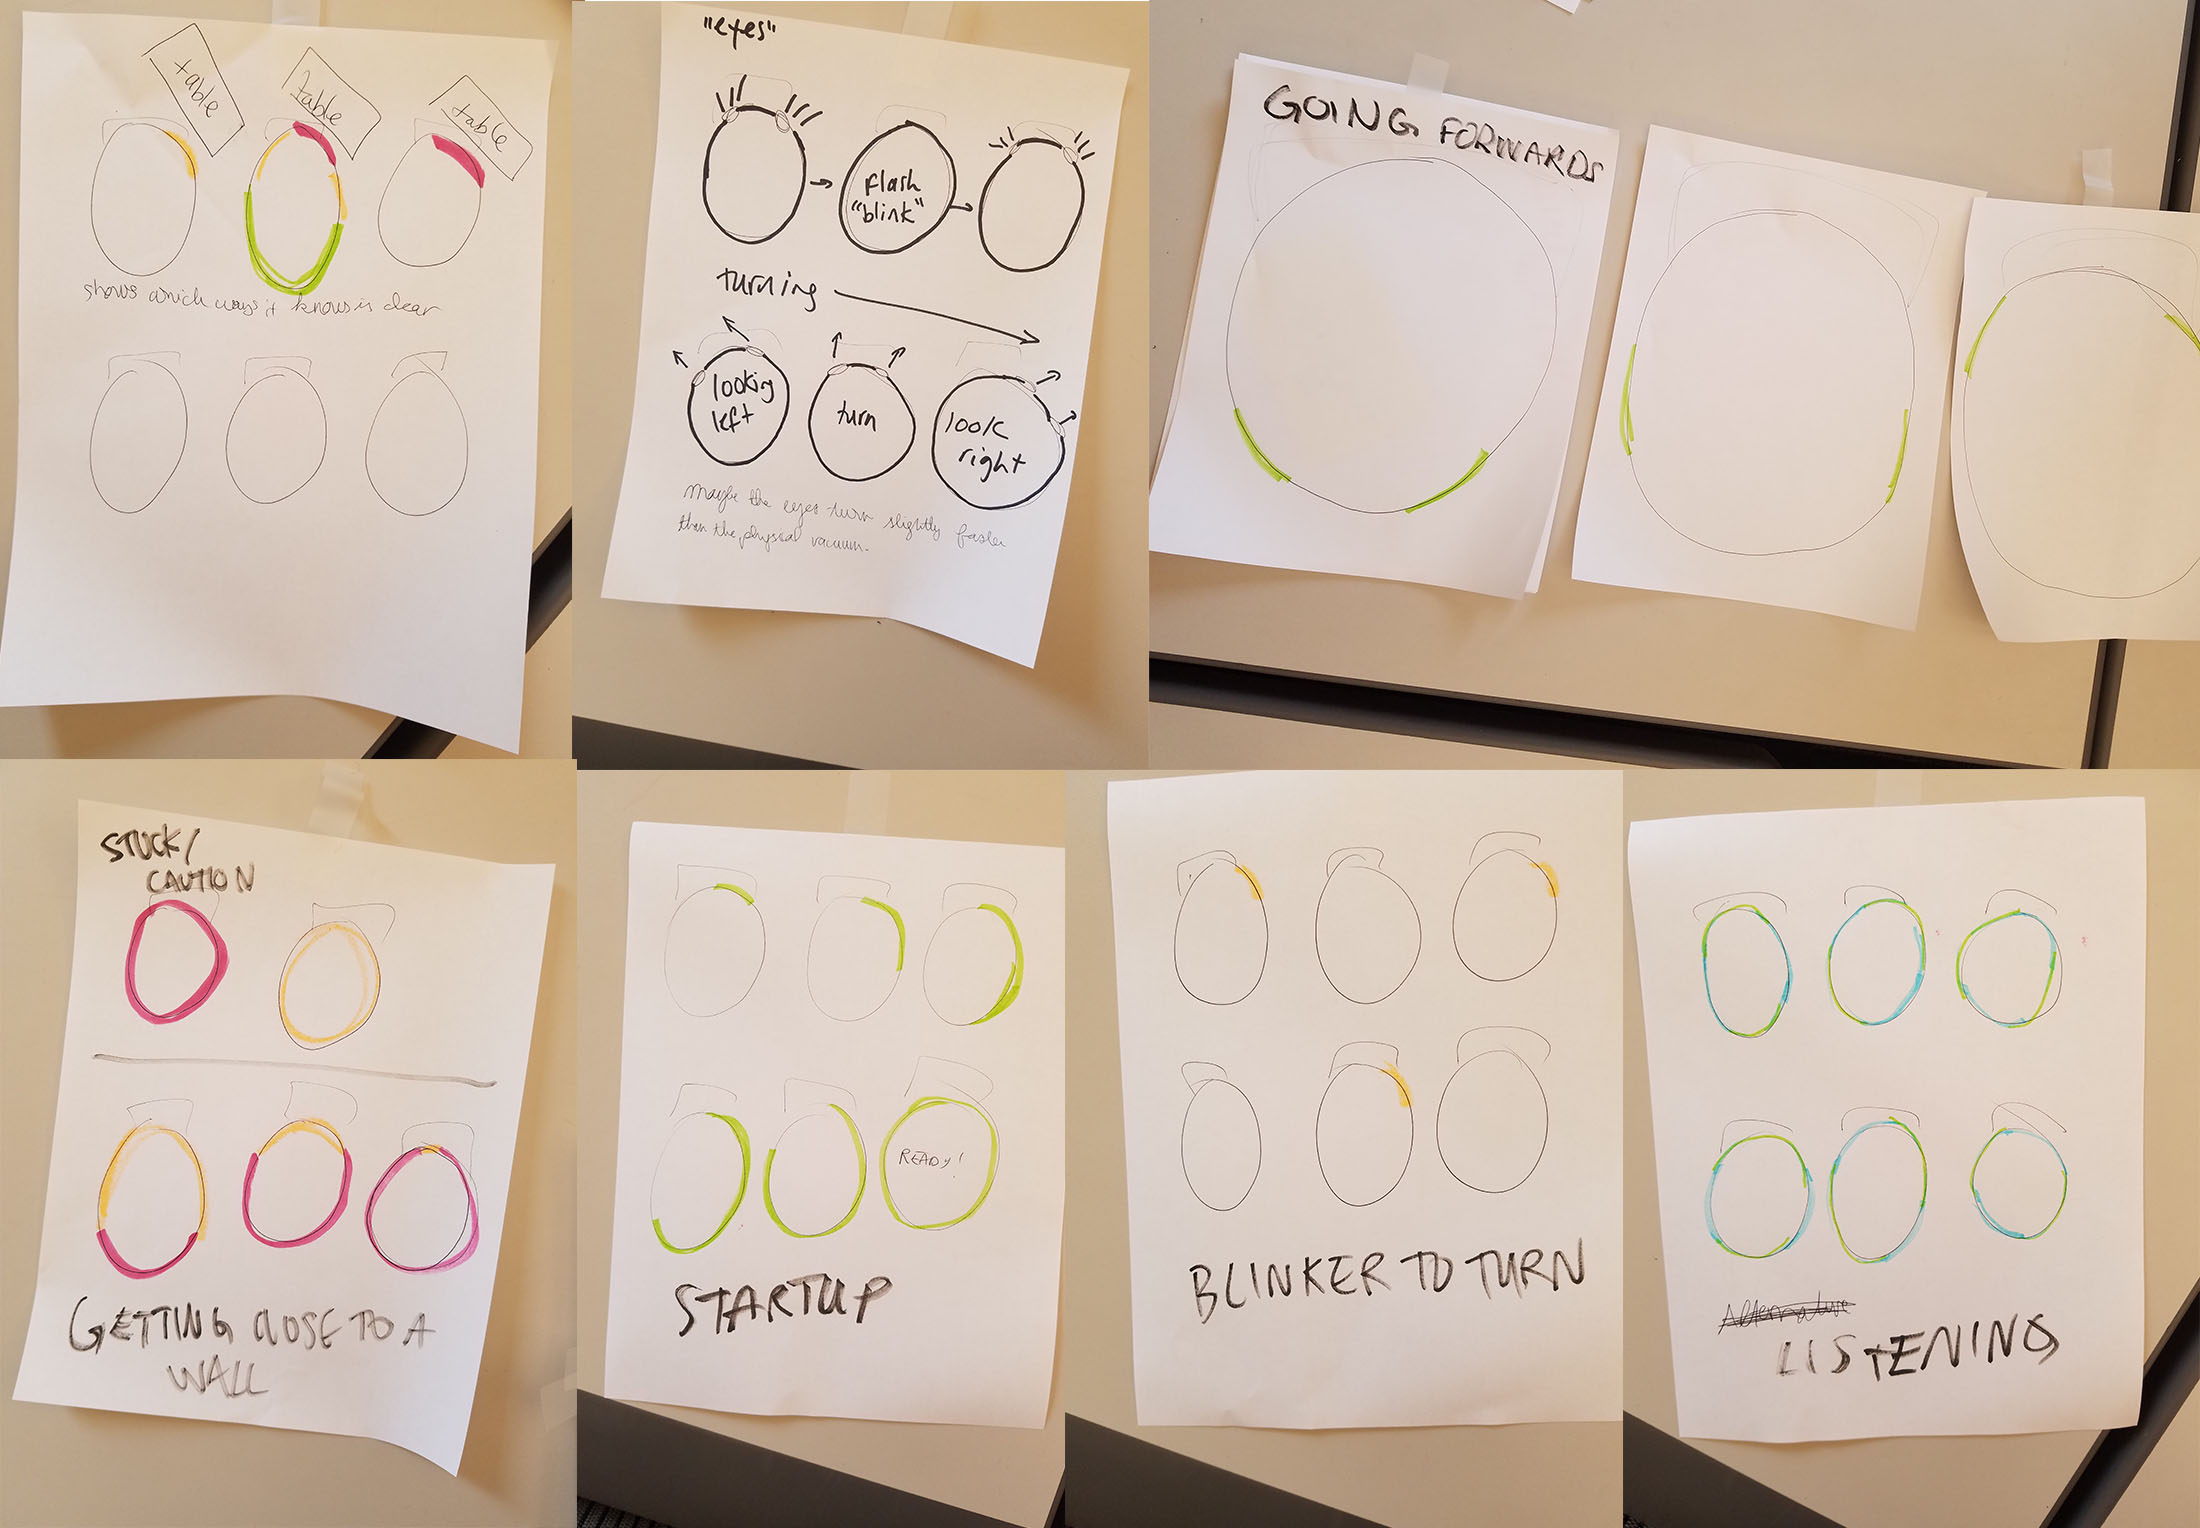 table
table
table
shows which ways it knows is clear
"eyes"
flash
"blink"
turning
looking
left
turn
look
right
Maybe the eyes turn slightly faster
than the physical vacuum.
GOING FORWARDS
STUCK/
CAUTION
GETTING CLOSE TO A
WALL
READY!
STARTUP
BLINKER TO TURN
Alternative
LISTENING